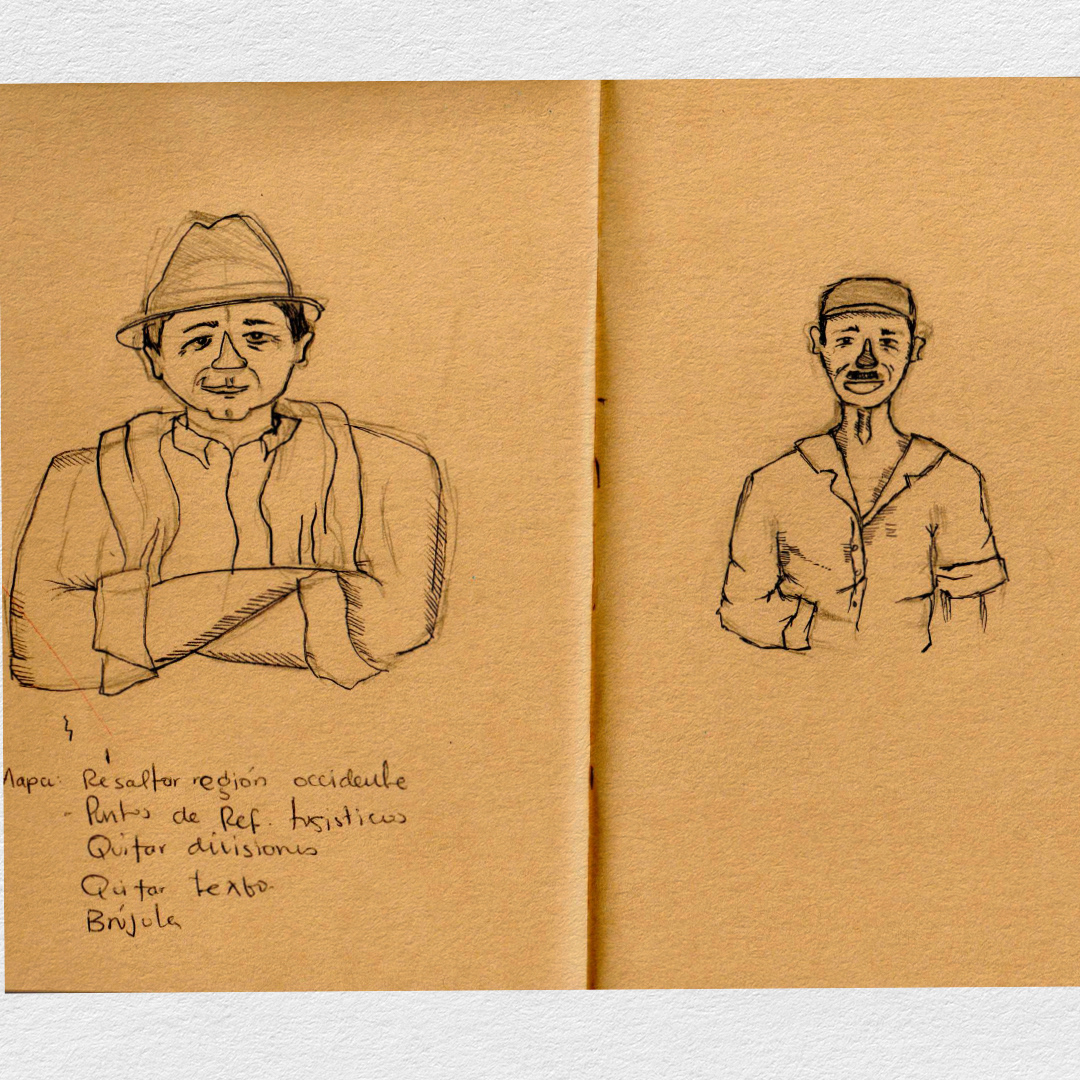 Mapa: Resaltar región occidente
- Puntos de Ref. turisticos
Quitar divisiones
Quitar texto.
Brújula